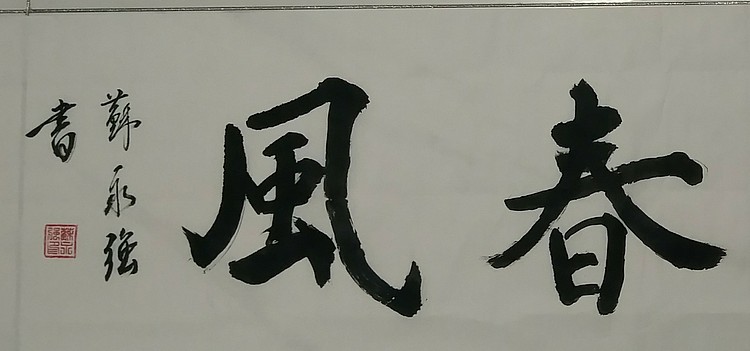 春風
蘇永強
書